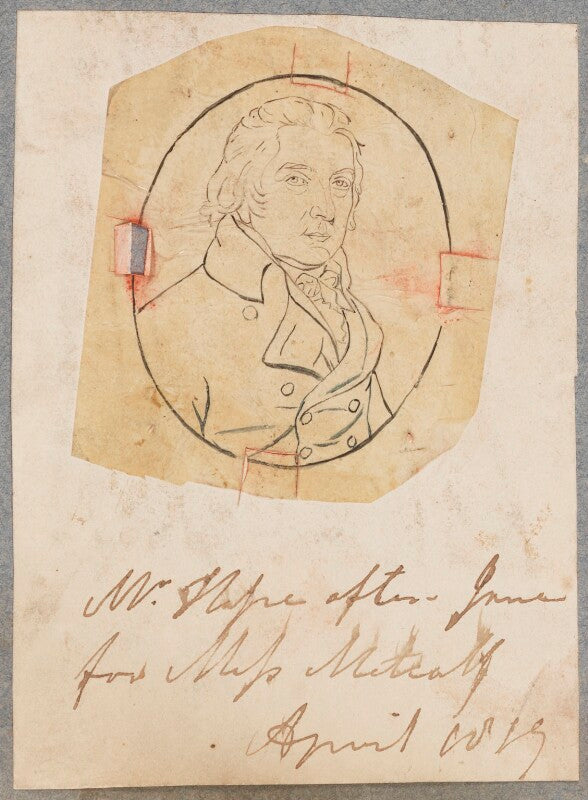 Mr. Hope after
for Miss Metcalf
April 1819